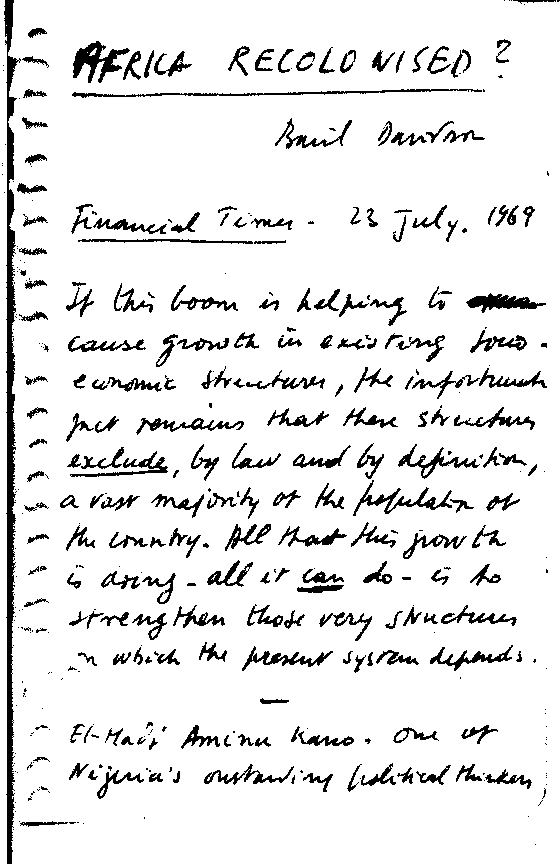 AFRICA RECOLONISED?
Basil Davidson
Financial Times - 23 July. 1969
If this boom is helping to
cause growth in existing socio-
economic structures, the unfortunate
fact remains that these structures
exclude, by law and by definition,
a vast majority of the population of
the country. All that this growth
is doing - all it can do - is to
strengthen those very structures
on which the present system depends.
—
El-Hadj Aminu Kano. One of
Nigeria's oustanding political thinkers